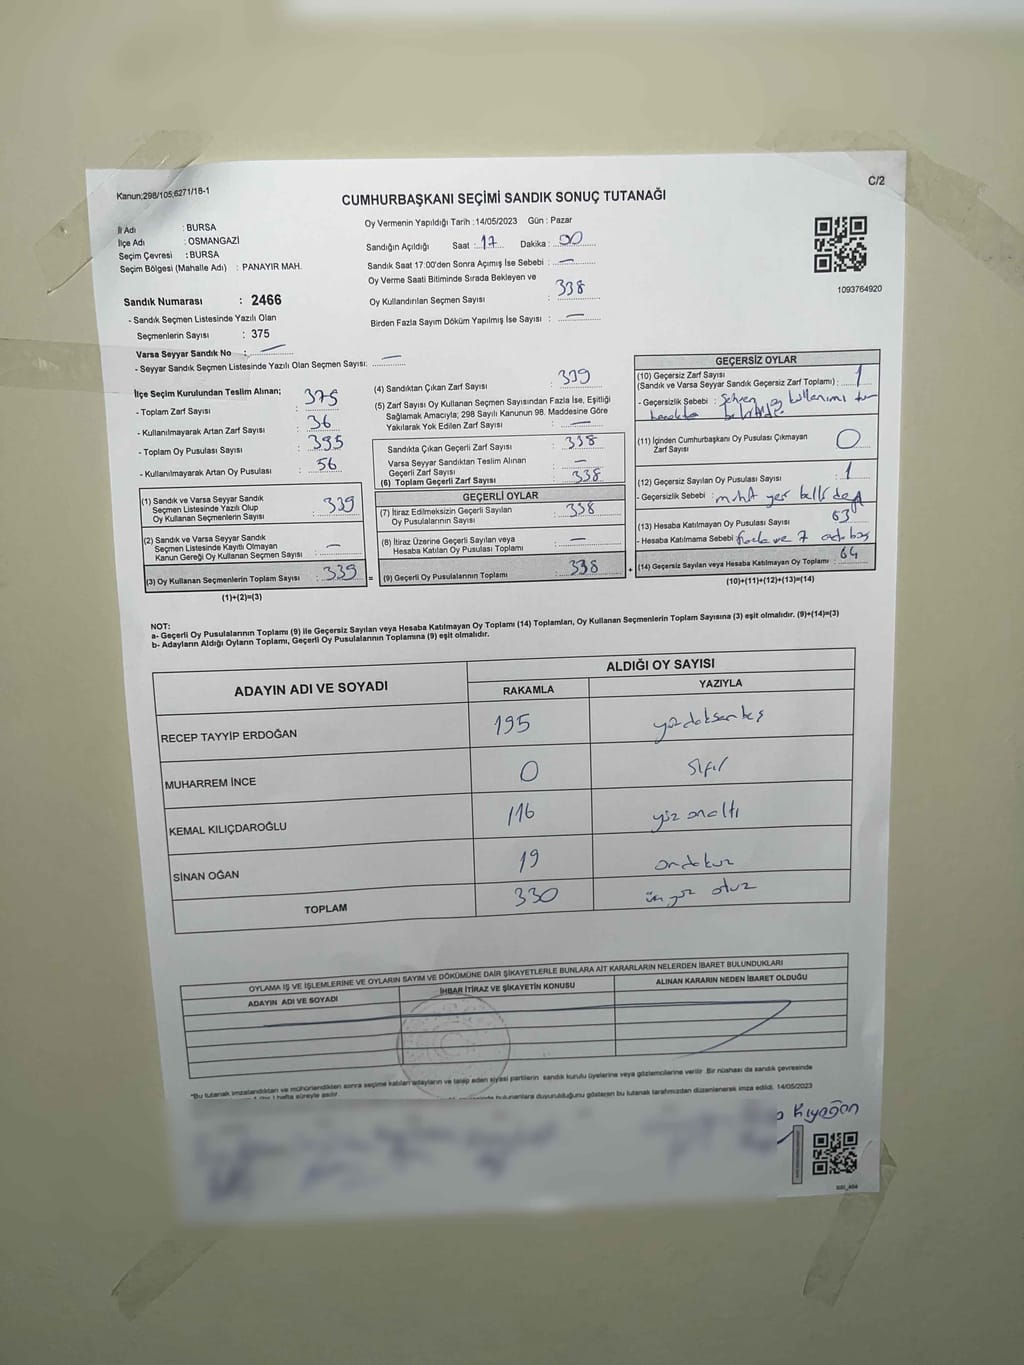 Kanun;298/105;6271/18-1
C/2
CUMHURBAŞKANI SEÇİMİ SANDIK SONUÇ TUTANAĞI
İl Adı : BURSA
İlçe Adı : OSMANGAZİ
Seçim Çevresi : BURSA
Seçim Bölgesi (Mahalle Adı) : PANAYIR MAH.
Sandık Numarası : 2466
- Sandık Seçmen Listesinde Yazılı Olan
Seçmenlerin Sayısı : 375
Varsa Seyyar Sandık No : —
- Seyyar Sandık Seçmen Listesinde Yazılı Olan Seçmen Sayısı: —
Oy Vermenin Yapıldığı Tarih : 14/05/2023 Gün : Pazar
Sandığın Açıldığı Saat : 17 Dakika : 00
Sandık Saat 17:00'den Sonra Açımış İse Sebebi : —
Oy Verme Saati Bitiminde Sırada Bekleyen ve
Oy Kullandırılan Seçmen Sayısı : 338
Birden Fazla Sayım Döküm Yapılmış İse Sayısı : —
1093764920
İlçe Seçim Kurulundan Teslim Alınan;
- Toplam Zarf Sayısı : 375
- Kullanılmayarak Artan Zarf Sayısı : 36
- Toplam Oy Pusulası Sayısı : 395
- Kullanılmayarak Artan Oy Pusulası : 56
(1) Sandık ve Varsa Seyyar Sandık
Seçmen Listesinde Yazılı Olup
Oy Kullanan Seçmenlerin Sayısı : 339
(2) Sandık ve Varsa Seyyar Sandık
Seçmen Listesinde Kayıtlı Olmayan
Kanun Gereği Oy Kullanan Seçmen Sayısı : —
(3) Oy Kullanan Seçmenlerin Toplam Sayısı : 339 =
(1)+(2)=(3)
(4) Sandıktan Çıkan Zarf Sayısı : 339
(5) Zarf Sayısı Oy Kullanan Seçmen Sayısından Fazla İse, Eşitliği
Sağlamak Amacıyla; 298 Sayılı Kanunun 98. Maddesine Göre
Yakılarak Yok Edilen Zarf Sayısı : —
Sandıkta Çıkan Geçerli Zarf Sayısı : 338
Varsa Seyyar Sandıktan Teslim Alınan
Geçerli Zarf Sayısı : —
(6) Toplam Geçerli Zarf Sayısı : 338
GEÇERLİ OYLAR
(7) İtiraz Edilmeksizin Geçerli Sayılan
Oy Pusulalarının Sayısı : 338
(8) İtiraz Üzerine Geçerli Sayılan veya
Hesaba Katılan Oy Pusulası Toplamı : —
(9) Geçerli Oy Pusulalarının Toplamı : 338 +
GEÇERSİZ OYLAR
(10) Geçersiz Zarf Sayısı
(Sandık ve Varsa Seyyar Sandık Geçersiz Zarf Toplamı) : 1
- Geçersizlik Sebebi : kullanımı
(11) İçinden Cumhurbaşkanı Oy Pusulası Çıkmayan
Zarf Sayısı 0
(12) Geçersiz Sayılan Oy Pusulası Sayısı : 1
- Geçersizlik Sebebi : yer belli
(13) Hesaba Katılmayan Oy Pusulası Sayısı : 63
- Hesaba Katılmama Sebebi : ve 7
(14) Geçersiz Sayılan veya Hesaba Katılmayan Oy Toplamı : 64
(10)+(11)+(12)+(13)=(14)
NOT:
a- Geçerli Oy Pusulalarının Toplamı (9) ile Geçersiz Sayılan veya Hesaba Katılmayan Oy Toplamı (14) Toplamları, Oy Kullanan Seçmenlerin Toplam Sayısına (3) eşit olmalıdır. (9)+(14)=(3)
b- Adayların Aldığı Oyların Toplamı, Geçerli Oy Pusulalarının Toplamına (9) eşit olmalıdır.
ADAYIN ADI VE SOYADI
ALDIĞI OY SAYISI
RAKAMLA YAZIYLA
RECEP TAYYİP ERDOĞAN 195 yüzdoksanbeş
MUHARREM İNCE 0 sıfır
KEMAL KILIÇDAROĞLU 116 yüz onaltı
SİNAN OĞAN 19 ondokuz
TOPLAM 330 üç yüz otuz
OYLAMA İŞ VE İŞLEMLERİNE VE OYLARIN SAYIM VE DÖKÜMÜNE DAİR ŞİKAYETLERLE BUNLARA AİT KARARLARIN NELERDEN İBARET BULUNDUKLARI
ADAYIN ADI VE SOYADI İHBAR İTİRAZ VE ŞİKAYETİN KONUSU ALINAN KARARIN NEDEN İBARET OLDUĞU
*Bu tutanak imzalandıktan ve mühürlendikten sonra seçime katılan adayların ve talep eden siyasi partilerin sandık kurulu üyelerine veya gözlemcilerine verilir. Bir nüshası da sandık çevresinde
hafta süreyle asılır bulunanlara duyurulduğunu gösteren bu tutanak tarafımızdan düzenlenerek imza edildi. 14/05/2023